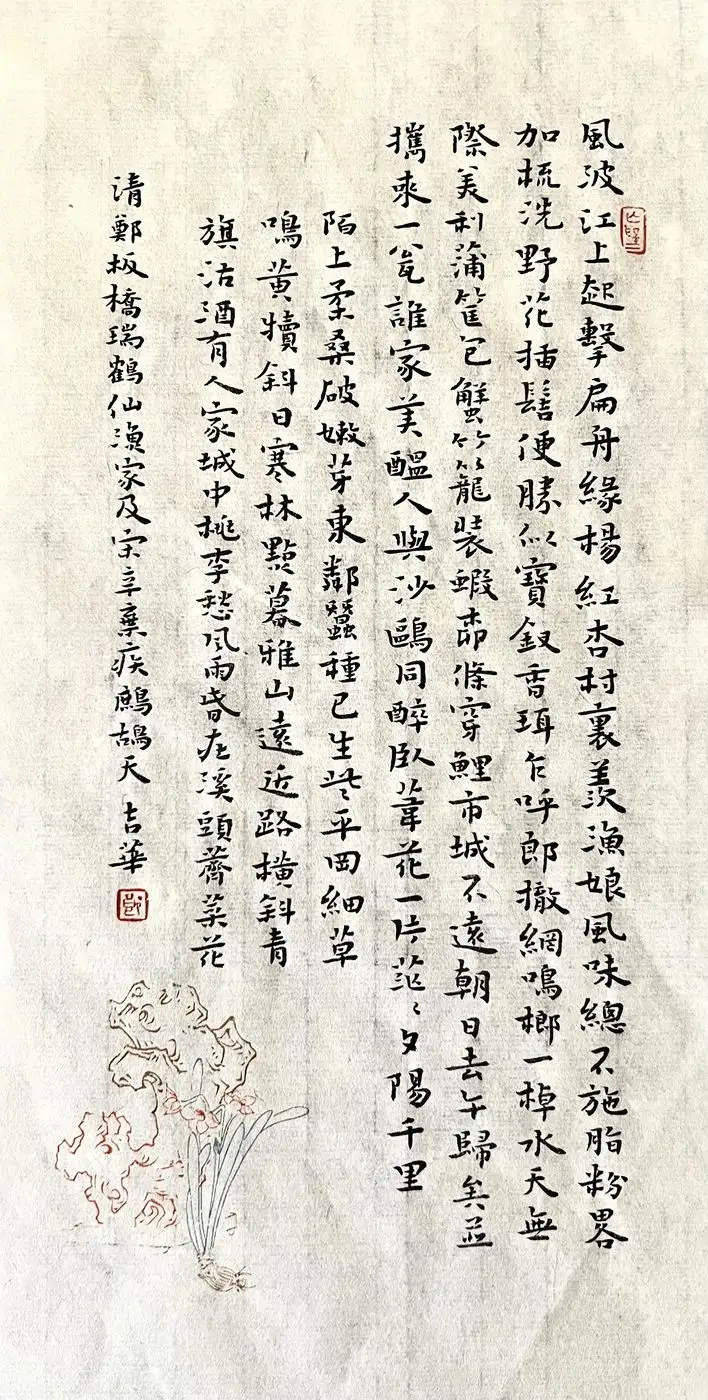 風波江上起擊扁舟緣楊紅杏村裏羨漁娘風味總不施脂粉畧
加梳洗野花插髻便勝似寶釵香珥乍呼郎撤網鳴榔一棹水天無
際美利蒲筐包蟹竹籠裝蝦柳條穿鯉市城不遠朝日去午歸矣並
攜來一瓮誰家美醞人與沙鷗同醉臥葦花一片茫〻夕陽千里
陌上柔桑破嫩芽東鄰蠶種已生些平岡細草
鳴黃犢斜日寒林點暮雅山遠近路橫斜青
旗沽酒有人家城中桃李愁風雨春在溪頭薺菜花
清鄭板橋瑞鶴仙漁家及宋辛棄疾鷓鴣天 吉華